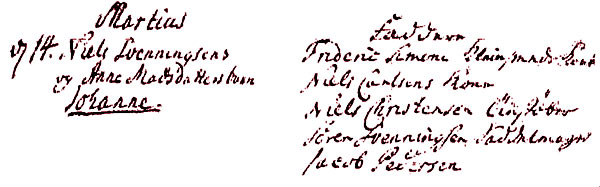 Martius
d 14. Niels Svenningsens
og Anne Madsdatters barn
Johanne.
Faddere
Frideric Simons
Niels Carlsens Kone
Niels Christensen
Søren Svenningsen Saddelmager
Jacob Pedersen